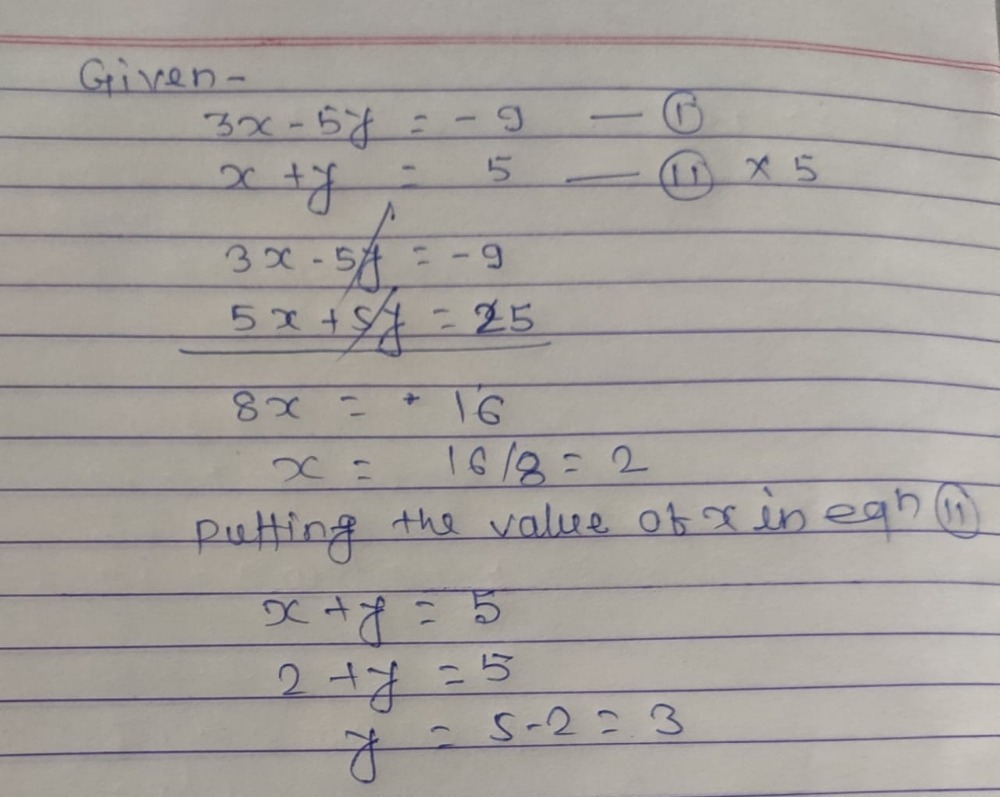 Given-
3x - 5y = - 9 — (I)
x + y = 5 — (II) × 5
3x - 5y = - 9
5x + 5y = 25
8x = + 16
x = 16/8 = 2
putting the value of x in eqn (II)
x + y = 5
2 + y = 5
y = 5 - 2 = 3